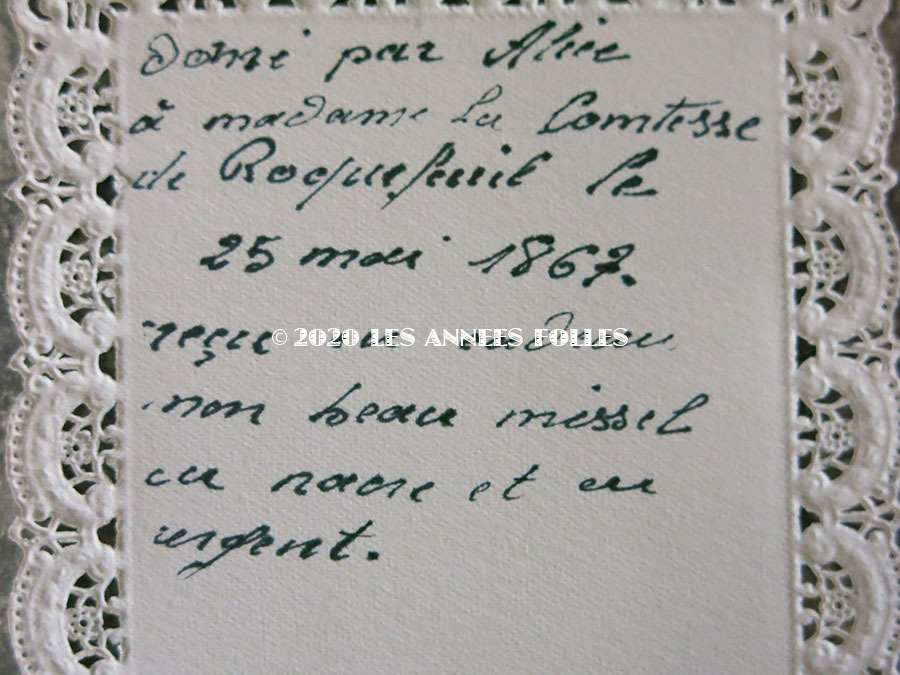 donné par Alice
à madame la Comtesse
de Roquefeuil le
25 mai 1867.
reçu en cadeau
© 2020 LES ANNEES FOLLES
mon beau missel
en nacre et en
argent.